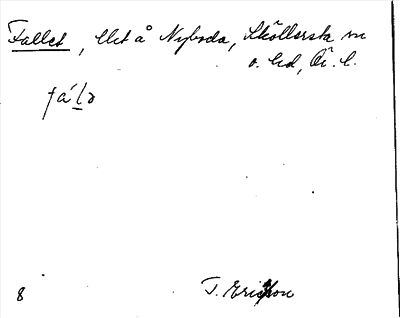 Fallet, lht å Nyboda, Sköllersta sn
o. hd, Ör. l.
fá'l̲ə
8 T. Ericsson